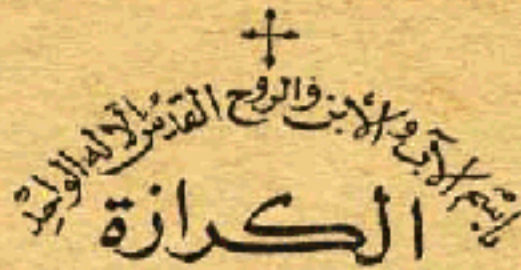 باسم الآب والابن والروح القدس الاله الواحد
الكرازة